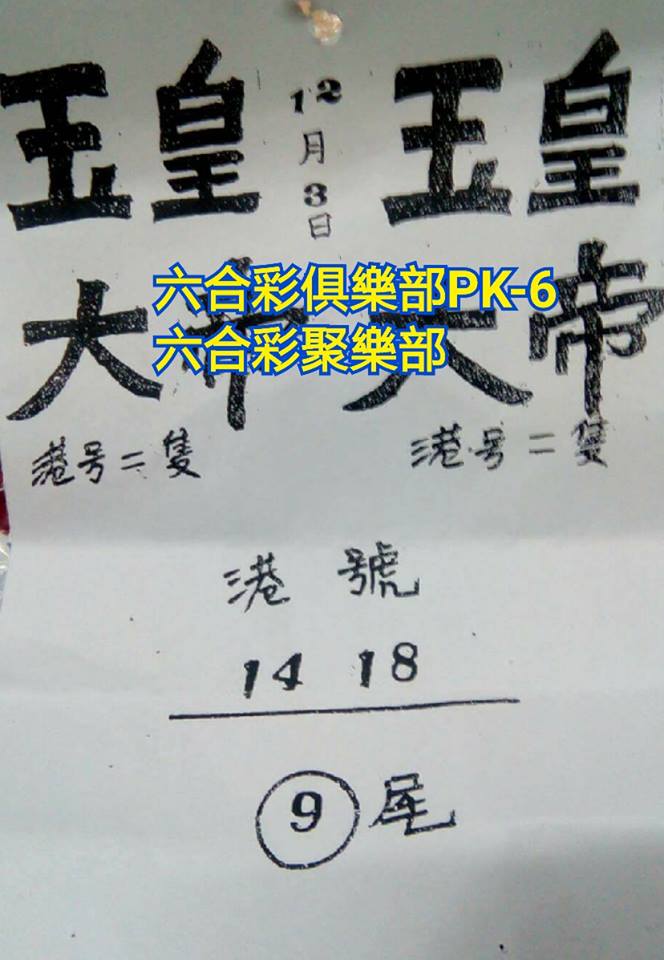 玉皇 12月3日 玉皇
大帝 大帝
六合彩俱樂部PK-6
六合彩聚樂部
港号二隻 港号二隻
港號
14 18
9尾